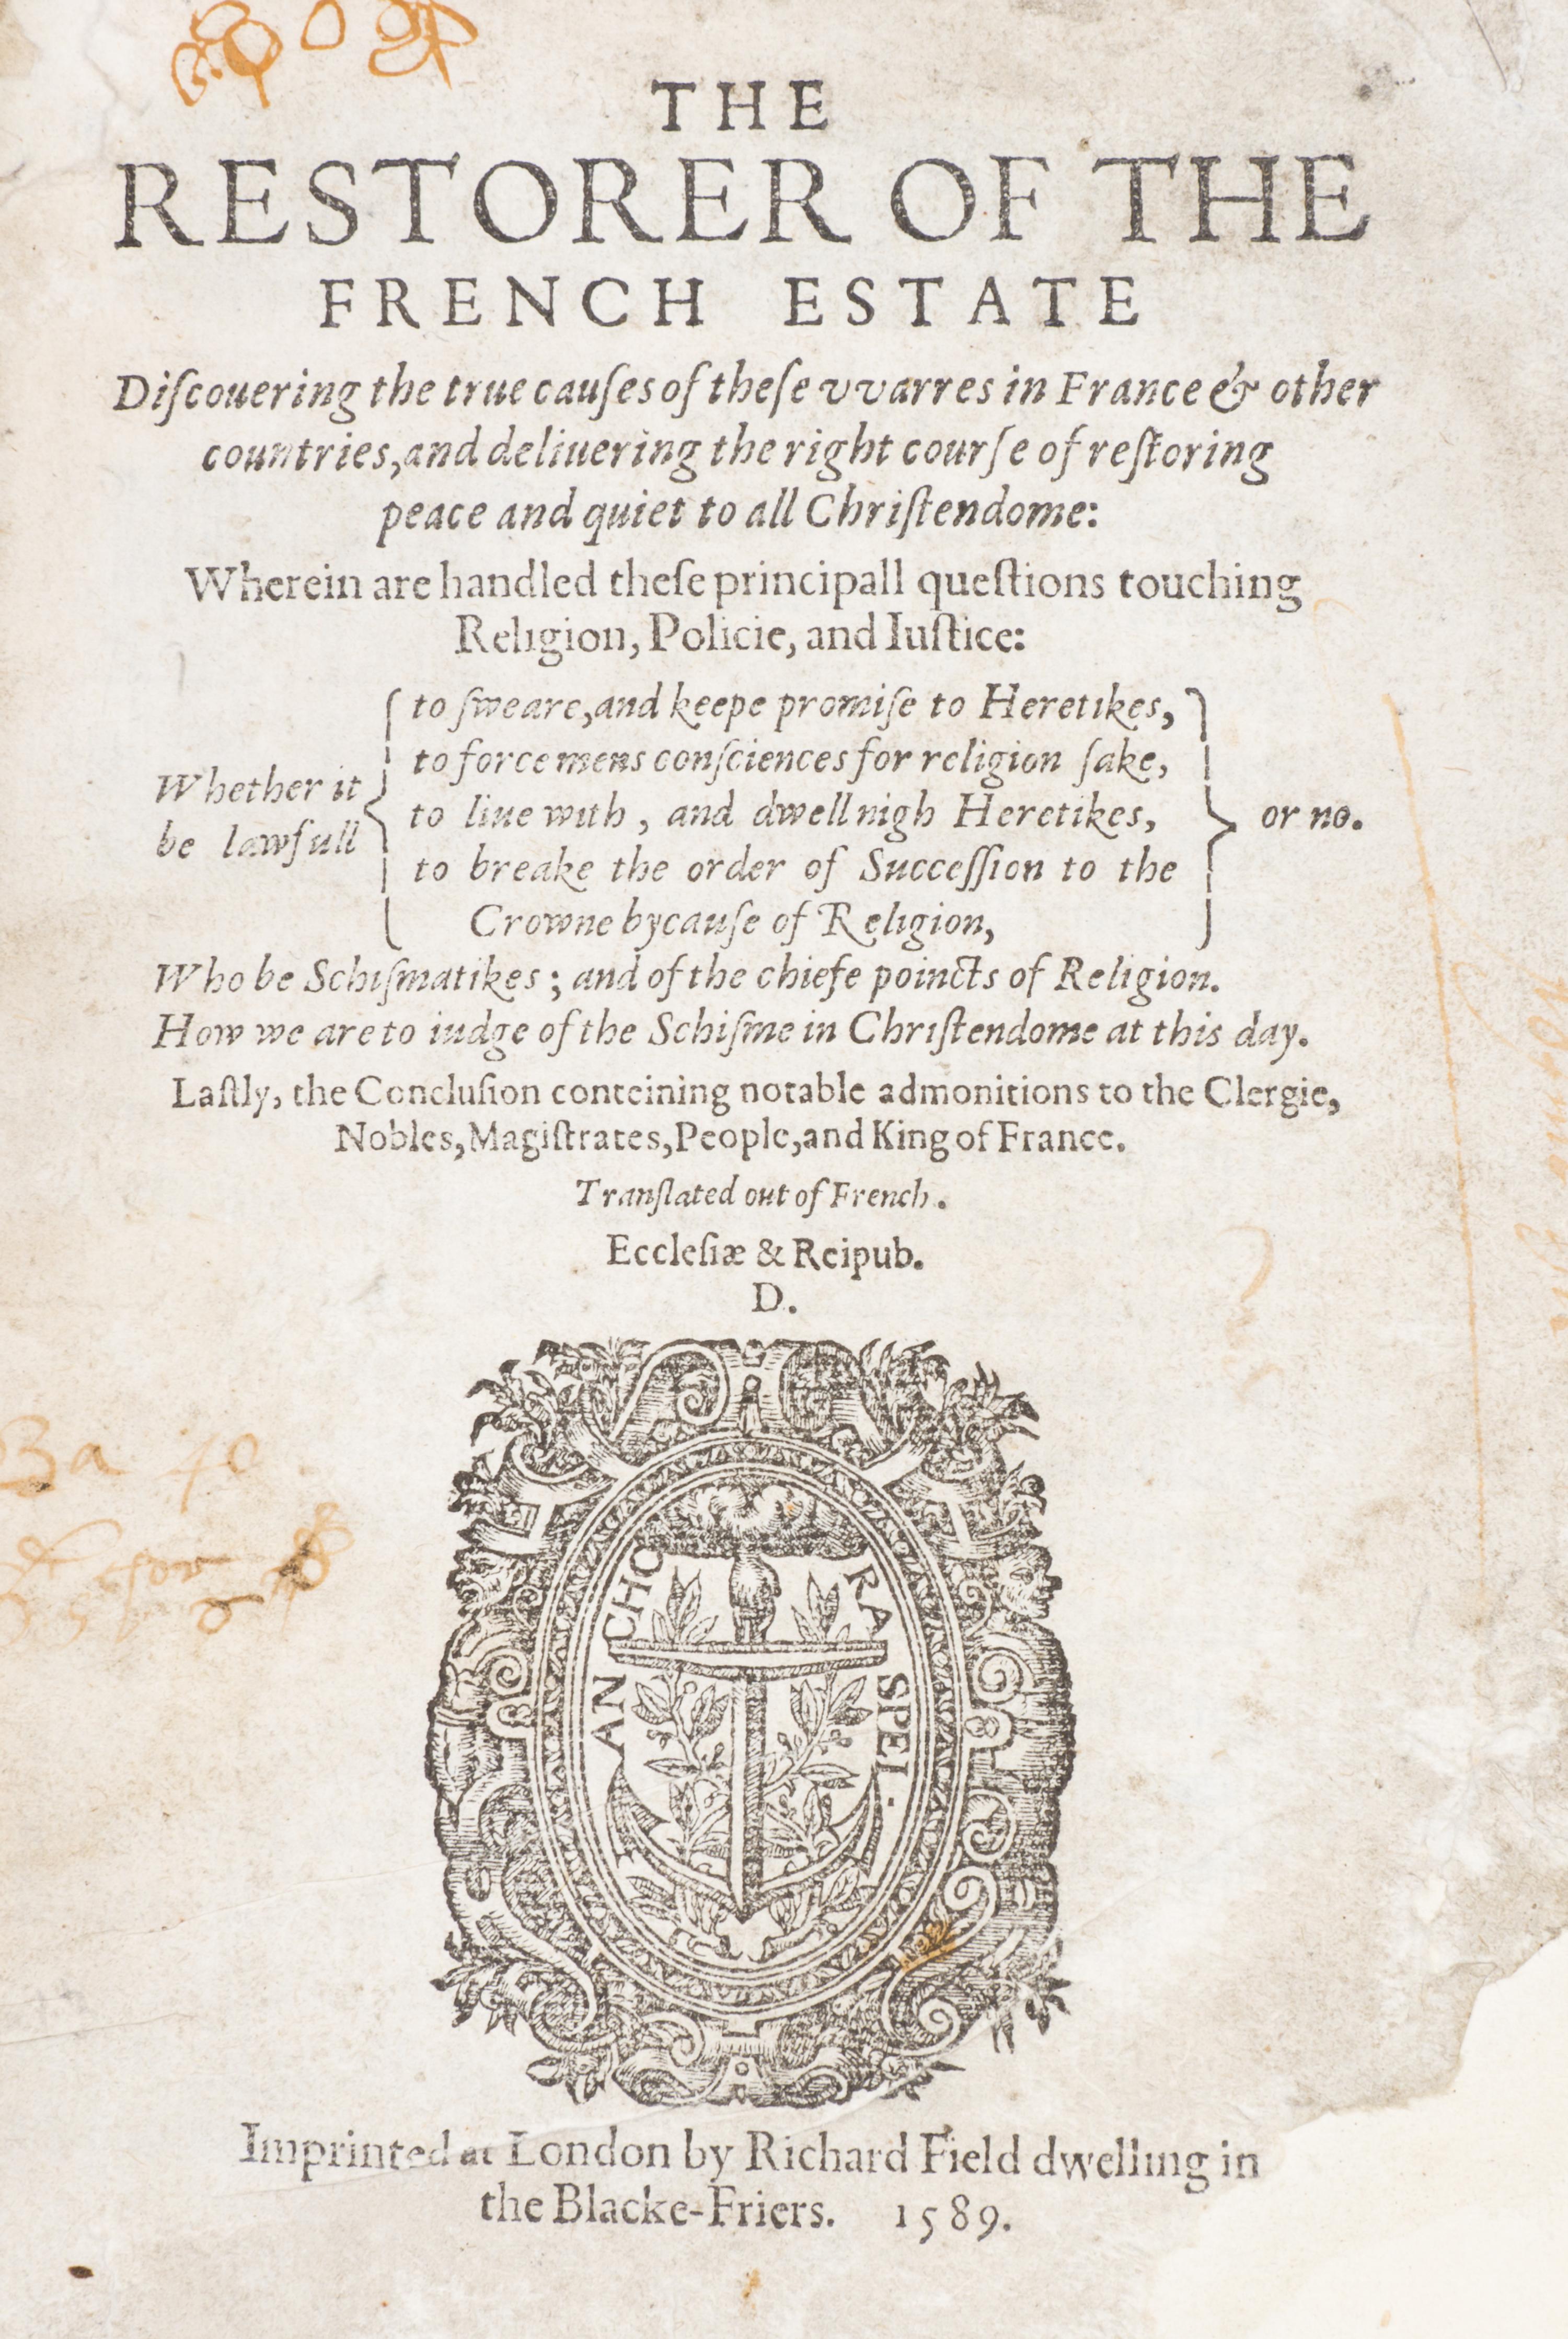 THE
RESTORER OF THE
FRENCH ESTATE
Diſcouering the true cauſes of theſe vvarres in France & other
countries, and deliuering the right courſe of reſtoring
peace and quiet to all Chriſtendome:
Wherein are handled theſe principall queſtions touching
Religion, Policie, and Iuſtice:
Whether it be lawfull
to ſweare, and keepe promiſe to Heretikes,
to force mens conſciences for religion ſake,
to liue with, and dwell nigh Heretikes,
to breake the order of Succeſſion to the
Crowne bycauſe of Religion,
or no.
Who be Schiſmatikes; and of the chiefe poincts of Religion.
How we are to iudge of the Schiſme in Chriſtendome at this day.
Laſtly, the Concluſion conteining notable admonitions to the Clergie,
Nobles, Magiſtrates, People, and King of France.
Tranſlated out of French.
Eccleſiæ & Reipub.
D.
ANCHORA SPEI.
Imprinted at London by Richard Field dwelling in
the Blacke-Friers. 1589.